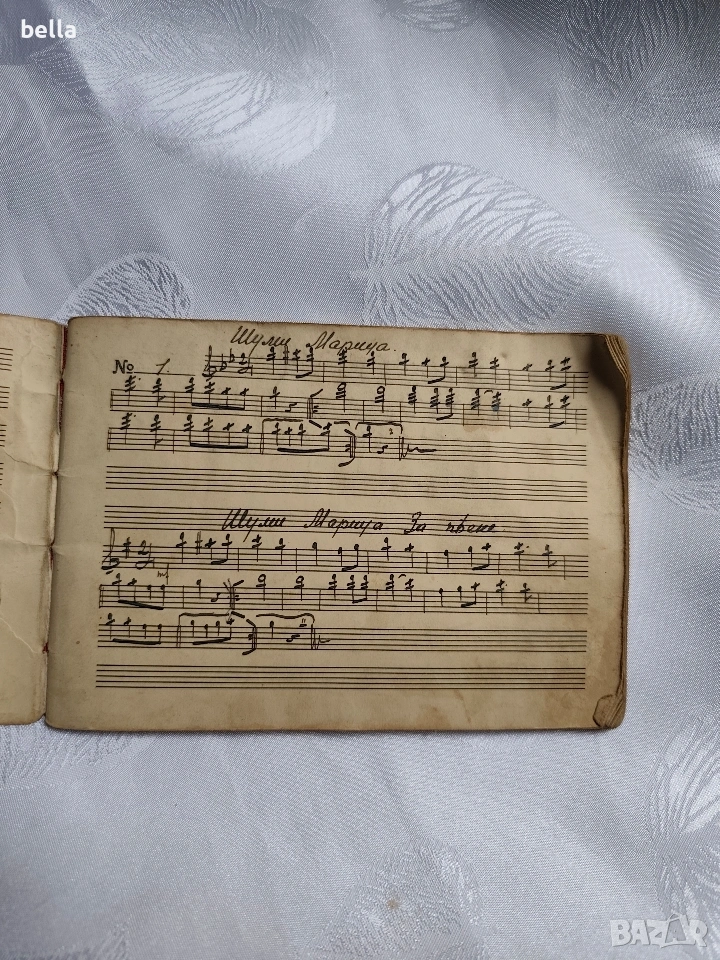 bella
Шуми Марица.
No 1.
Шуми Марица За пѣене.
BAZAR